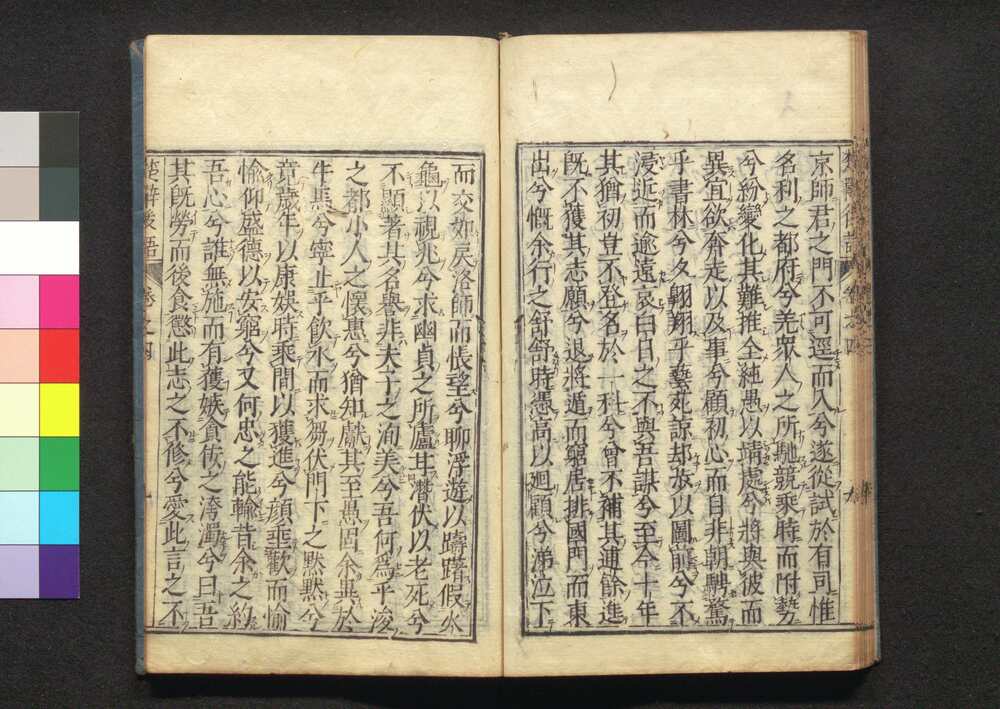 楚辭後語 卷之四 九
京師君之門不可逕而入兮遂從試於有司惟
名利之都府兮羌衆人之所馳競乘時而附勢
兮紛變化其難推全純愚以靖處兮將與彼而
異宜欲奔走以及事兮顧初心而自非朝騁騖
乎書林兮夕翱翔乎藝苑諒却放以圖前兮不
浸近而逾遠哀白日之不與吾謀兮至今十年
其猶初豈不登名於一科兮曾不補其逋餘進
既不獲其志願兮退將遁而窮居排國門而東
出兮慨余行之舒舒時憑高以廻顧兮涕泣下
而交如戾洛師而悵望兮聊浮遊以躊躇假大
龜以視兆兮求幽貞之所廬甘潛伏以老死兮
不顯著其名譽非夫子之洵美兮吾何爲乎浚
之都小人之懷惠兮猶知獻其至愚固余異於
牛馬兮寧止乎飲水而求芻伏門下之默默兮
竟歲年以康娛時乘間以獲進兮顔垂歡而愉
愉仰盛德以安窮兮又何忠之能輸昔余之約
吾心兮誰無施而有獲嫉貪佞之洿濁兮曰吾
其既勞而後食懲此志之不修兮愛此言之不
楚辭後語 卷之四 九